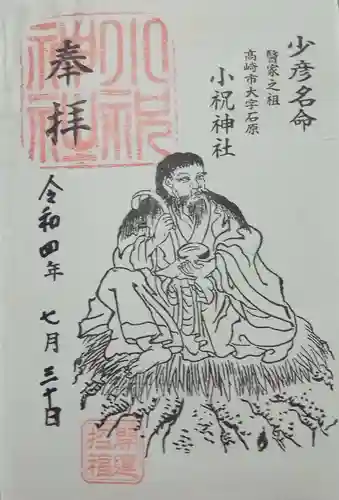 少彦名命
醫家之祖
高崎市大字石原
小祝神社
奉拝
小祝神社
令和四年 七月 三十日
開運招福